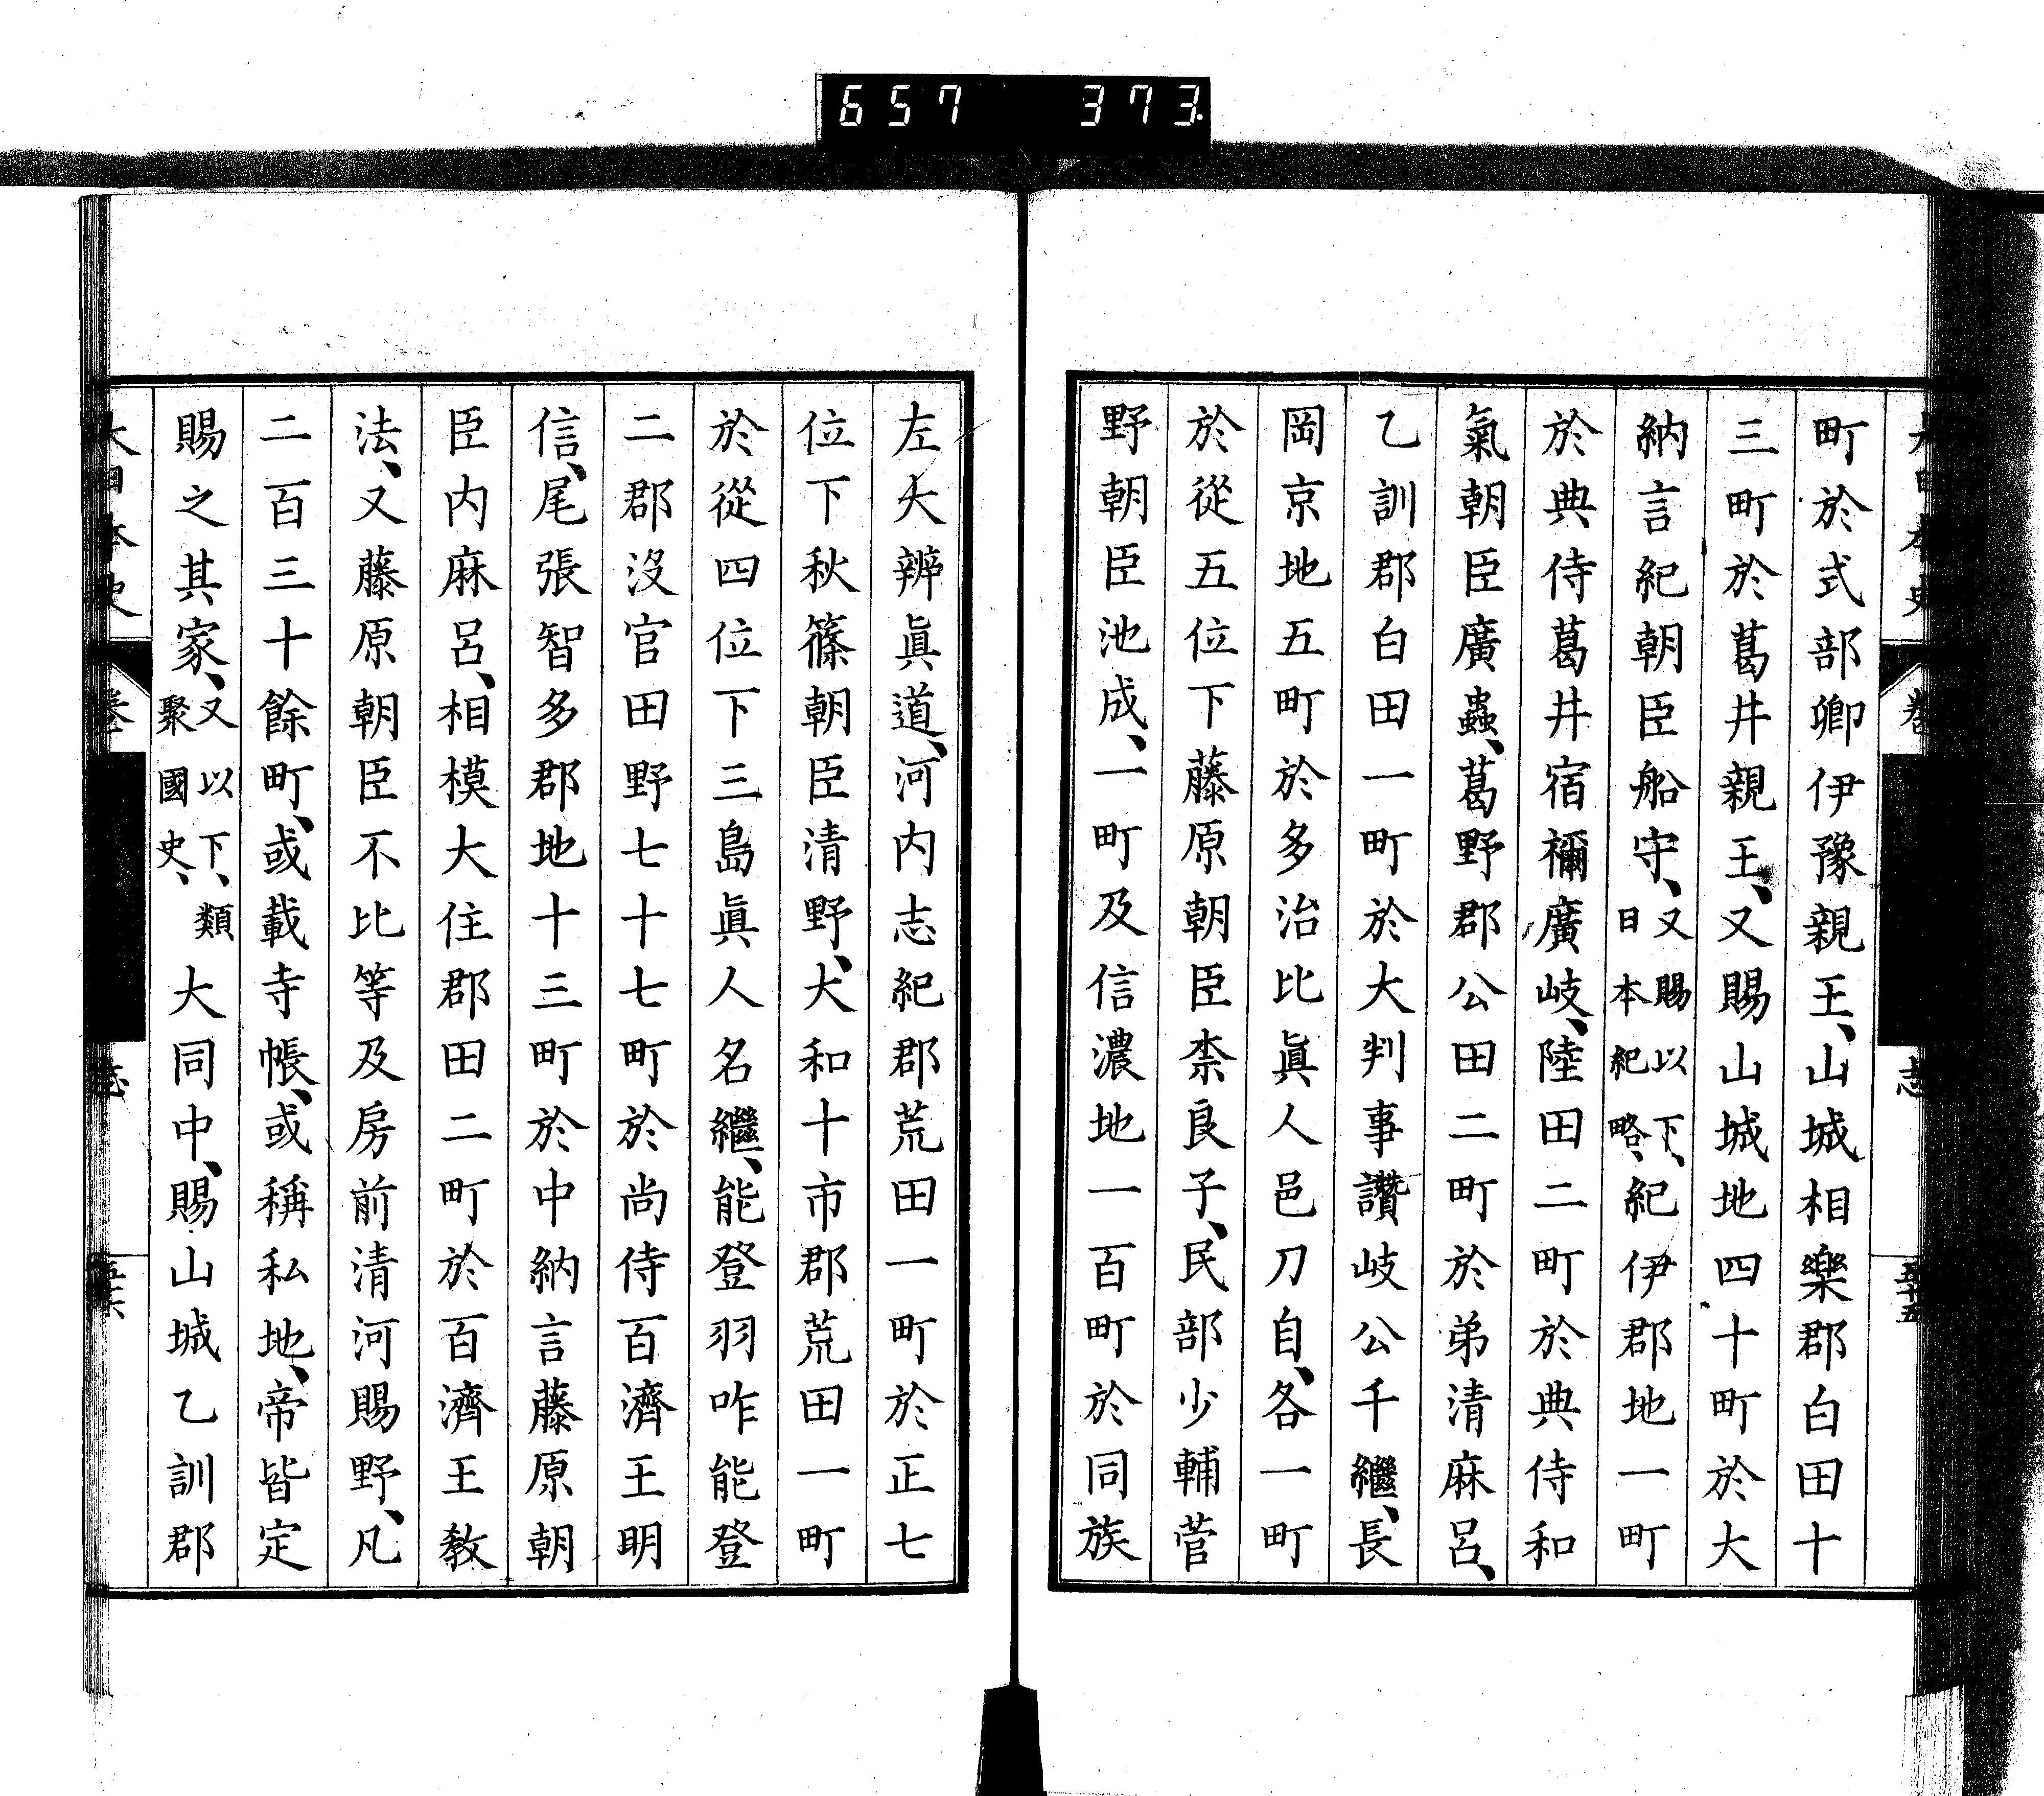 657 373.
町於式部卿伊豫親王、山城相樂郡白田十
三町於葛井親王、又賜山城地四十町於大
納言紀朝臣船守、又賜以下、日本紀略、紀伊郡地一町
於典侍葛井宿禰廣岐、陸田二町於典侍和
氣朝臣廣蟲、葛野郡公田二町於弟清麻呂、
乙訓郡白田一町於大判事讚岐公千繼、長
岡京地五町於多治比眞人邑刀自、各一町
於從五位下藤原朝臣柰良子、民部少輔菅
野朝臣池成、一町及信濃地一百町於同族
左大辨眞道、河内志紀郡荒田一町於正七
位下秋篠朝臣清野、大和十市郡荒田一町
於從四位下三島眞人名繼、能登羽咋能登
二郡沒官田野七十七町於尚侍百濟王明
信、尾張智多郡地十三町於中納言藤原朝
臣内麻呂、相模大住郡田二町於百濟王教
法、又藤原朝臣不比等及房前清河賜野、凡
二百三十餘町、或載寺帳、或稱私地、帝皆定
賜之其家、又以下、類聚國史、大同中、賜山城乙訓郡